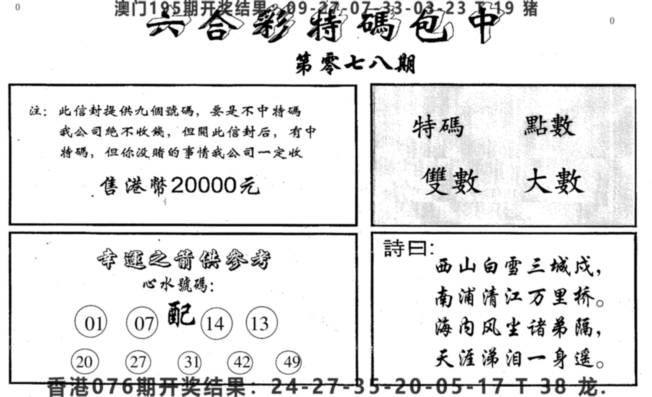 澳门195期开奖结果：09-27-07-33-03-23 T 19 猪
六合彩特碼包中
第零七八期
注：此信封提供九個號碼，要是不中特碼
我公司绝不收錢，但開此信封后，有中
特碼，但你没賭的事情我公司一定收
售港幣20000元
特碼 點數
雙數 大數
幸運之箭供參考
心水號碼：
01 07 配 14 13
20 27 31 42 49
詩曰：
西山白雪三城戍，
南浦清江万里桥。
海内风尘诸弟隔，
天涯涕泪一身遥。
香港076期开奖结果：24-27-35-20-05-17 T 38 龙.